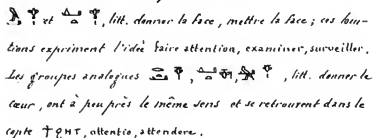 et , litt. donner la face, mettre la face; ces locu-
tions expriment l'idée faire attention, examiner, surveiller.
Les groupes analogues , litt. donner le
cœur, ont à peu près le même sens et se retrouvent dans le
copte ϯϩⲏⲧ, attentio, attendere.